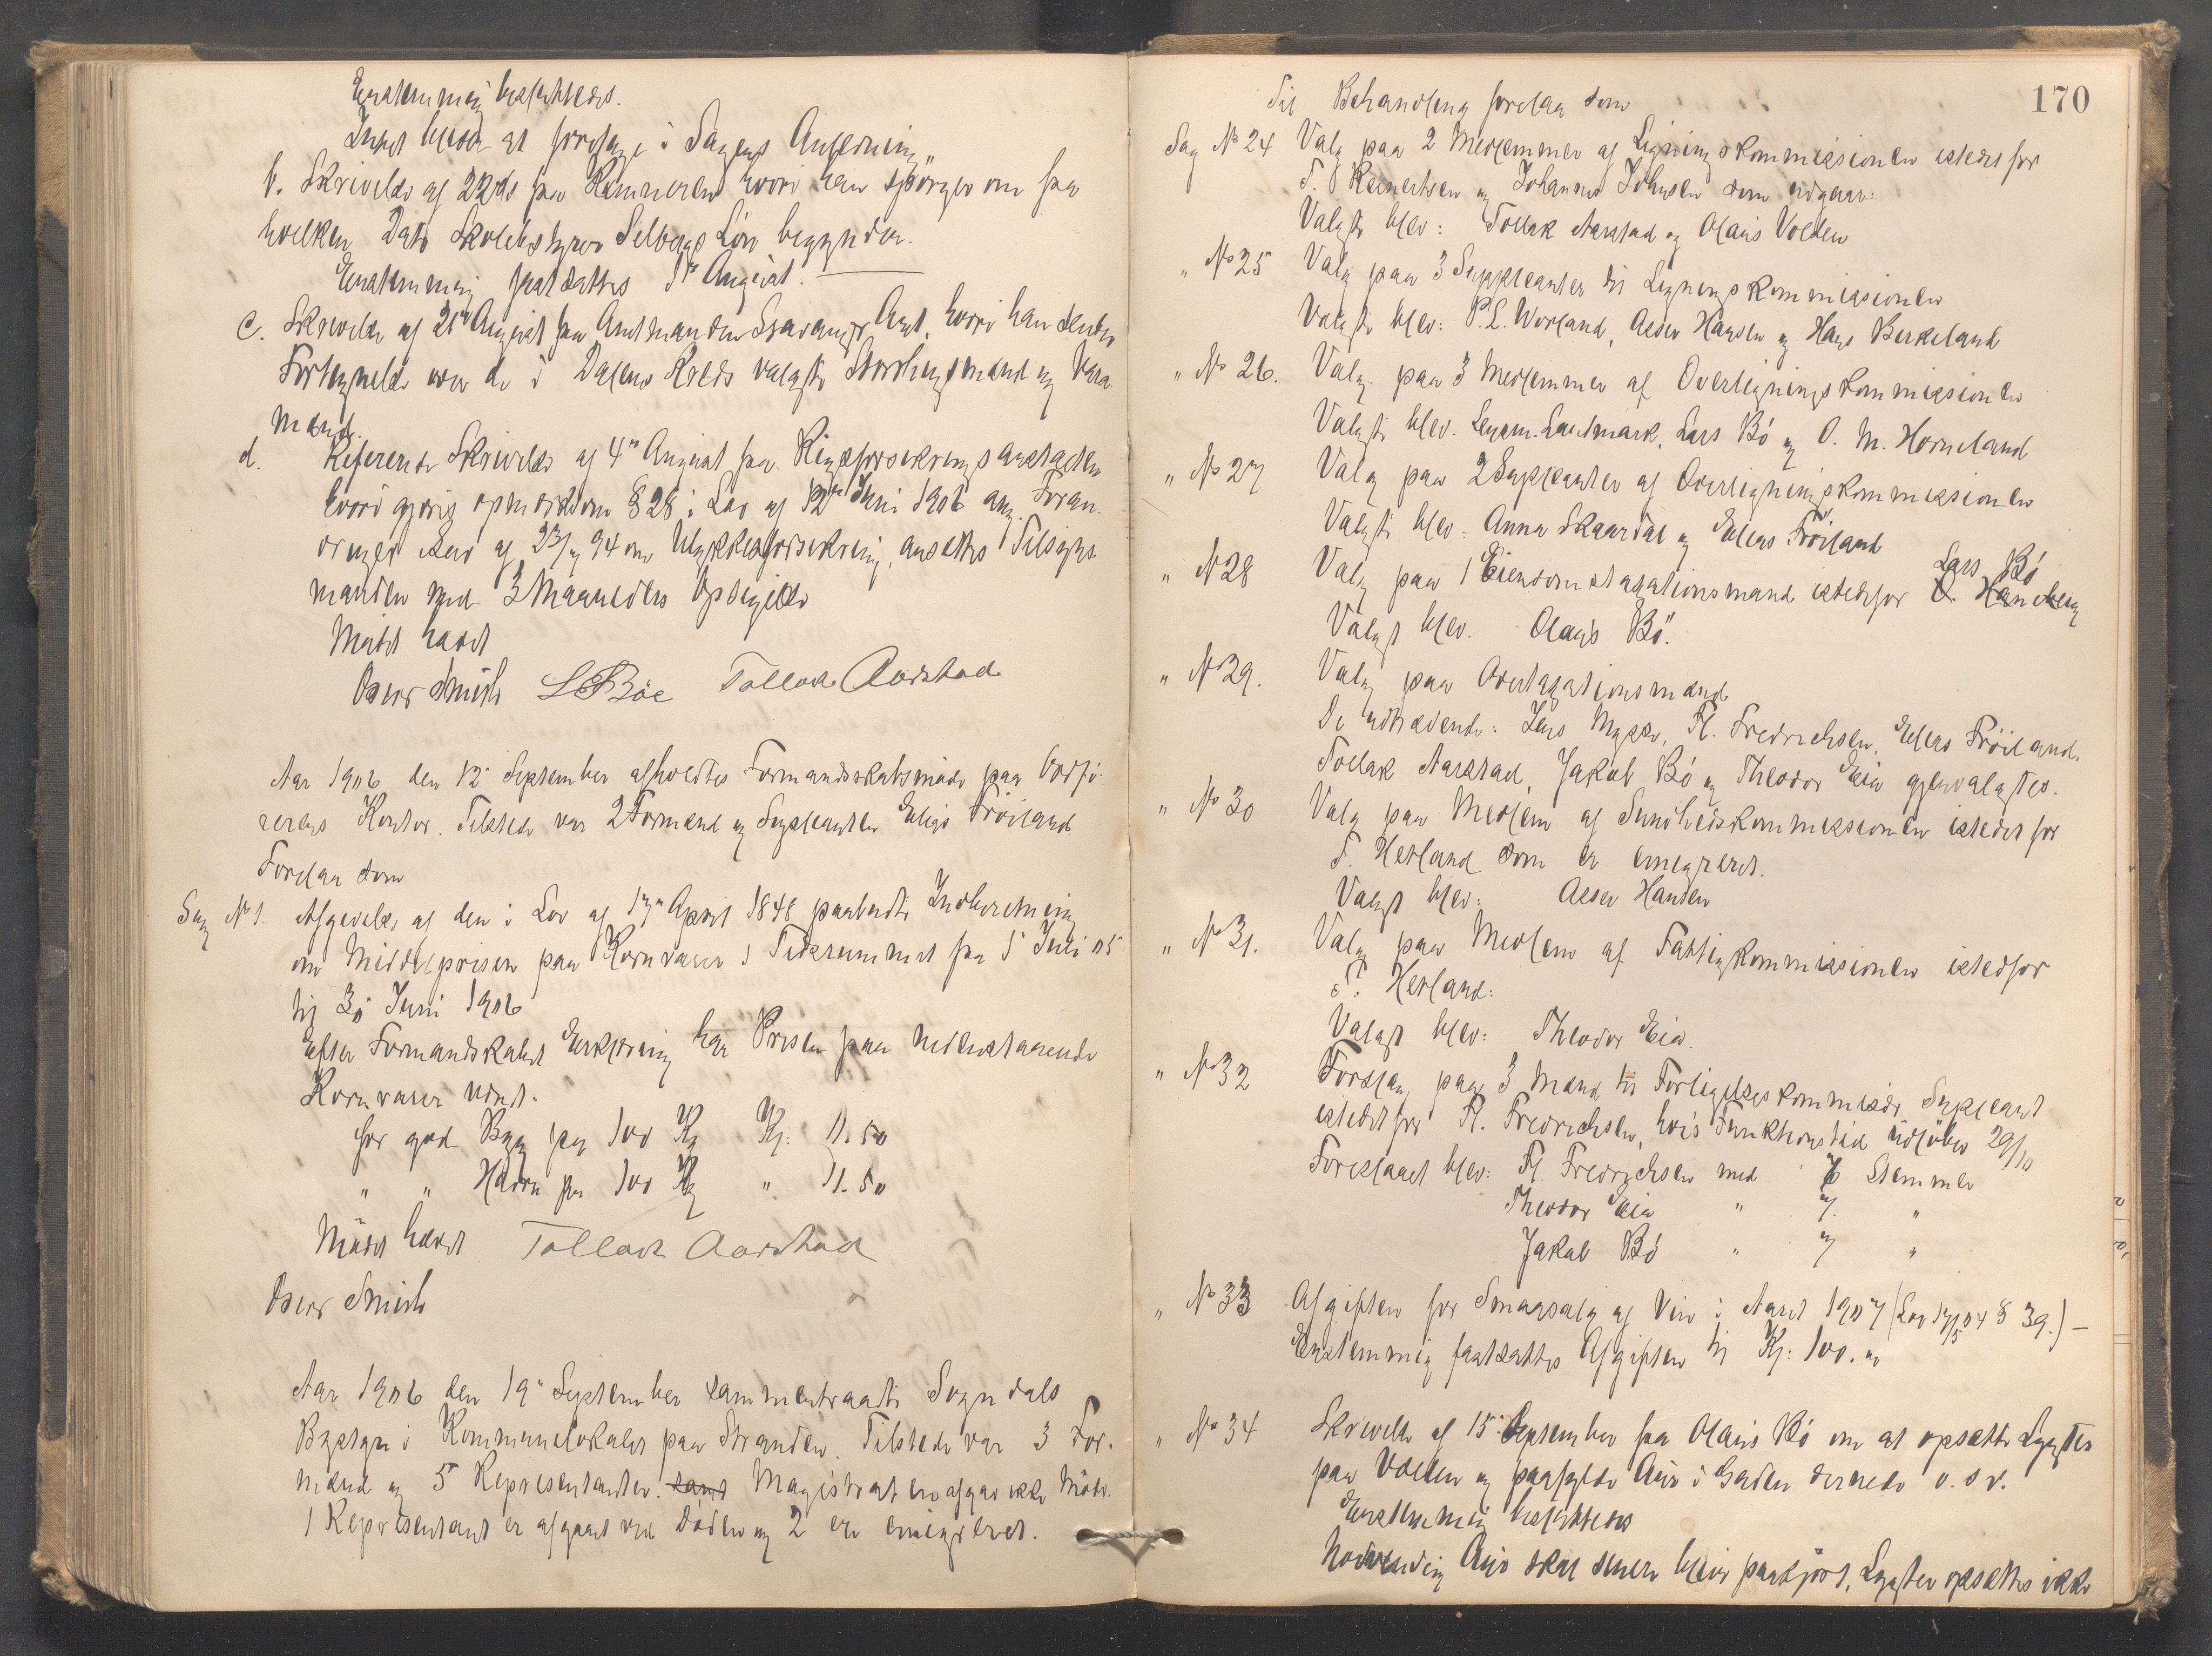 Enstemmig besluttedes.
Intet bliver at foretage i Sagens Anledning"
b. Skrivelse af 22de fra Kemneren hvori han spørger om fra
hvilken Dato Skolebestyrer Selbergs Løn begynder.
Enstemmig fastsattes 1ste August.
c. Skrivelse af 21de August fra Amtmanden Stavanger Amt, hvori han sender
Fortegnelse over de i Dalens Kreds valgte Storthingsmænd og Vara
mænd.
d. Refererede Skrivelse af 4de August fra Rigsforsikringsanstalten
hvori gjøres opmærksom § 28 i Lov af 12te Juni 1906 ang. Foran-
dringer i Lov af 23/7 94 om Ulykkesforsikring, ansættes Tilsyns
manden med 3 Maaneders Opsigelse
Mødet hævet
Oscar Smith LBBöe Tollak Aarstad
Aar 1906 den 12te September afholdtes Formandsskabsmøde paa Ordfö-
rerens Kontor. Tilstede var 2 Formænd og Suppleanten Elias Fröiland
Forelaa som
Sag No 1. Afgivelse af den i Lov af 17de April 1848 paabudte Indberetning
om Middelprisen paa Kornvarer i Tidsrummet fra 1ste Juli 05
til 30 Juni 1906
Efter Formandskabets Erklæring har Prisen paa nedenstaaende
Kornvarer været.
for god Byg pr 100 Kg Kr: 11.50
" " Havre pr 100 Kg " 11.50
Mødet hævet Tollak Aarstad
Oscar Smith
Aar 1906 den 19de September sammentraadte Sogndals
Bystyre i Kommunelokalet paa Stranden. Tilstede var 3 For-
mænd og 5 Repræsentanter. samt Magistraten afgav ikke Møde.
1 Repræsentant er afgaaet ved Døden og 2 er emigreret.
170
Til Behandling forelaa som
Sag No 24 Valg paa 2 Medlemmer af Ligningskommissionen istedet for
T. Reinertsen og Johannes Johnsen som udgaar:
Valgte blev: Tollak Aarstad og Olaus Volden
" No 25 Valg paa 3 Suppleanter til Ligningskommissionen
Valgte blev: P. L. Worland, Asser Hansen og Hans Berkeland
" No 26. Valg paa 3 Medlemmer af Overligningskommissionen
Valgte blev. Lensm. Landmark, Lars Bö og O. M. Horneland
" No 27 Valg paa 2 Suppleanter af Overligningskommissionen
Valgte blev: Anna Skaardal og Elias Fröiland
" No 28 Valg paa 1 Eiendomstaxationsmand istedfor O. Haneberg Lars Bö
Valgt blev. Olaus Bö.
" No 29. Valg paa Overtaxationsmænd
De udtrædende: Lars Mysse, Fl. Fredrichsen, Elias Fröiland,
Tollak Aarstad, Jakob Bö og Theodor Eia gjenvalgtes.
" No 30 Valg paa Medlem af Sundhedskommissionen istedet for
T. Hetland som er emigreret.
Valgt blev: Asser Hansen
" No 31. Valg paa Medlem af Fattigkommissionen istedfor
T. Hetland:
Valgt blev: Theodor Eia.
" No 32 Forslag paa 3 Mænd til Forligelseskommissær Suppleant
istedet for Fl. Fredrichsen, hvis Funktionstid udløber 29/10
Foreslaaet blev: Fl. Fredrichsen med 6 Stemmer
Theodor Eia " 7 "
Jakob Bö " 7 "
" No 33 Afgiften for Smaasalg af Vin i Aaret 1907 (Lov 17/5 04 § 39.) –
Enstemmig fastsattes Afgiften til Kr: 100. 00
" No 34 Skrivelse af 15de September fra Olaus Bö om at opsætte Lygter
paa Volden og paafylde Aur i Gaden dernede o. s. v.
Enstemmig besluttedes
Nødvendig Aur skal senere blive paakjørt, Lygter opsættes ikke